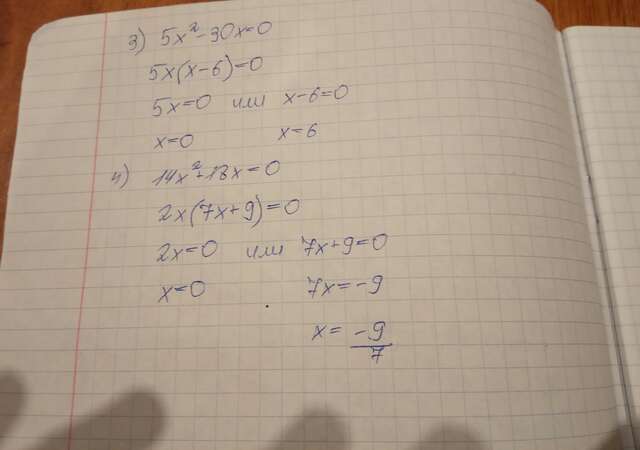 3) 5x²-30x=0
5x(x-6)=0
5x=0 или x-6=0
x=0 x=6
4) 14x²+18x=0
2x(7x+9)=0
2x=0 или 7x+9=0
x=0 7x=-9
x= -9/7